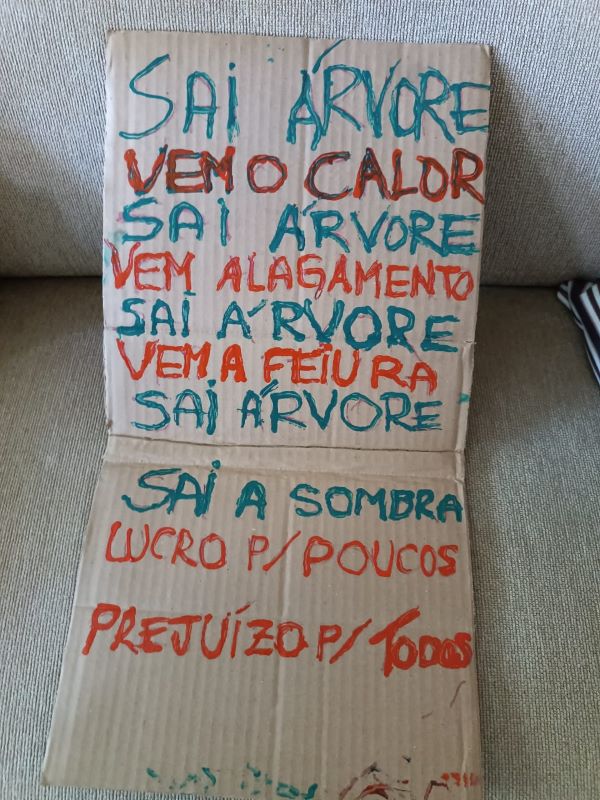 SAI ÁRVORE
VEM O CALOR
SAI ÁRVORE
VEM ALAGAMENTO
SAI ÁRVORE
VEM A FEIURA
SAI ÁRVORE
SAI A SOMBRA
LUCRO P/ POUCOS
PREJUÍZO P/ TODOS